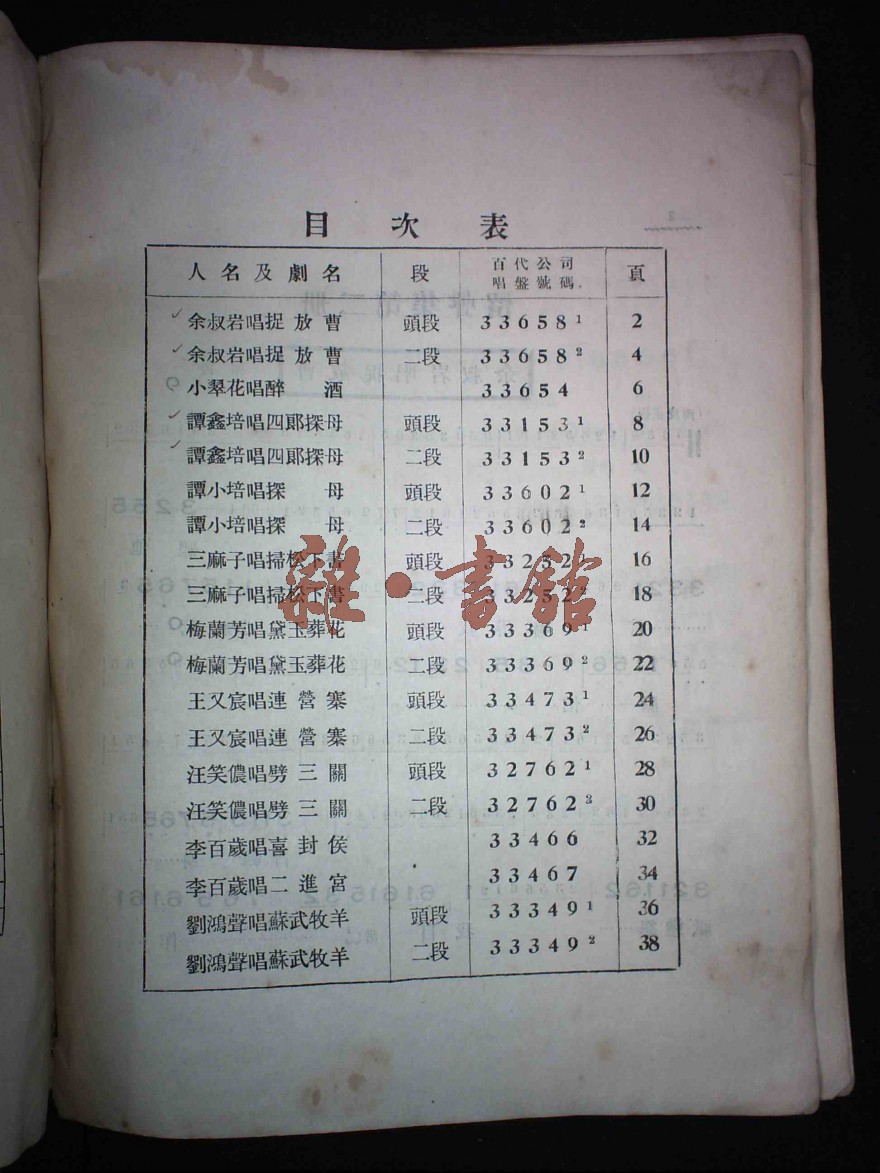 目次表
人名及劇名 段 百代公司唱盤號碼. 頁
余叔岩唱捉放曹 頭段 33658¹ 2
余叔岩唱捉放曹 二段 33658² 4
小翠花唱醉酒 33654 6
譚鑫培唱四郞探母 頭段 33153¹ 8
譚鑫培唱四郞探母 二段 33153² 10
譚小培唱探母 頭段 33602¹ 12
譚小培唱探母 二段 33602² 14
三麻子唱掃松下書 頭段 33252 16
三麻子唱掃松下書 二段 33252² 18
梅蘭芳唱黛玉葬花 頭段 33369¹ 20
梅蘭芳唱黛玉葬花 二段 33369² 22
王又宸唱連營寨 頭段 33473¹ 24
王又宸唱連營寨 二段 33473² 26
汪笑儂唱劈三關 頭段 32762¹ 28
汪笑儂唱劈三關 二段 32762² 30
李百歲唱喜封侯 33466 32
李百歲唱二進宮 33467 34
劉鴻聲唱蘇武牧羊 頭段 33349¹ 36
劉鴻聲唱蘇武牧羊 二段 33349² 38
雜·書館